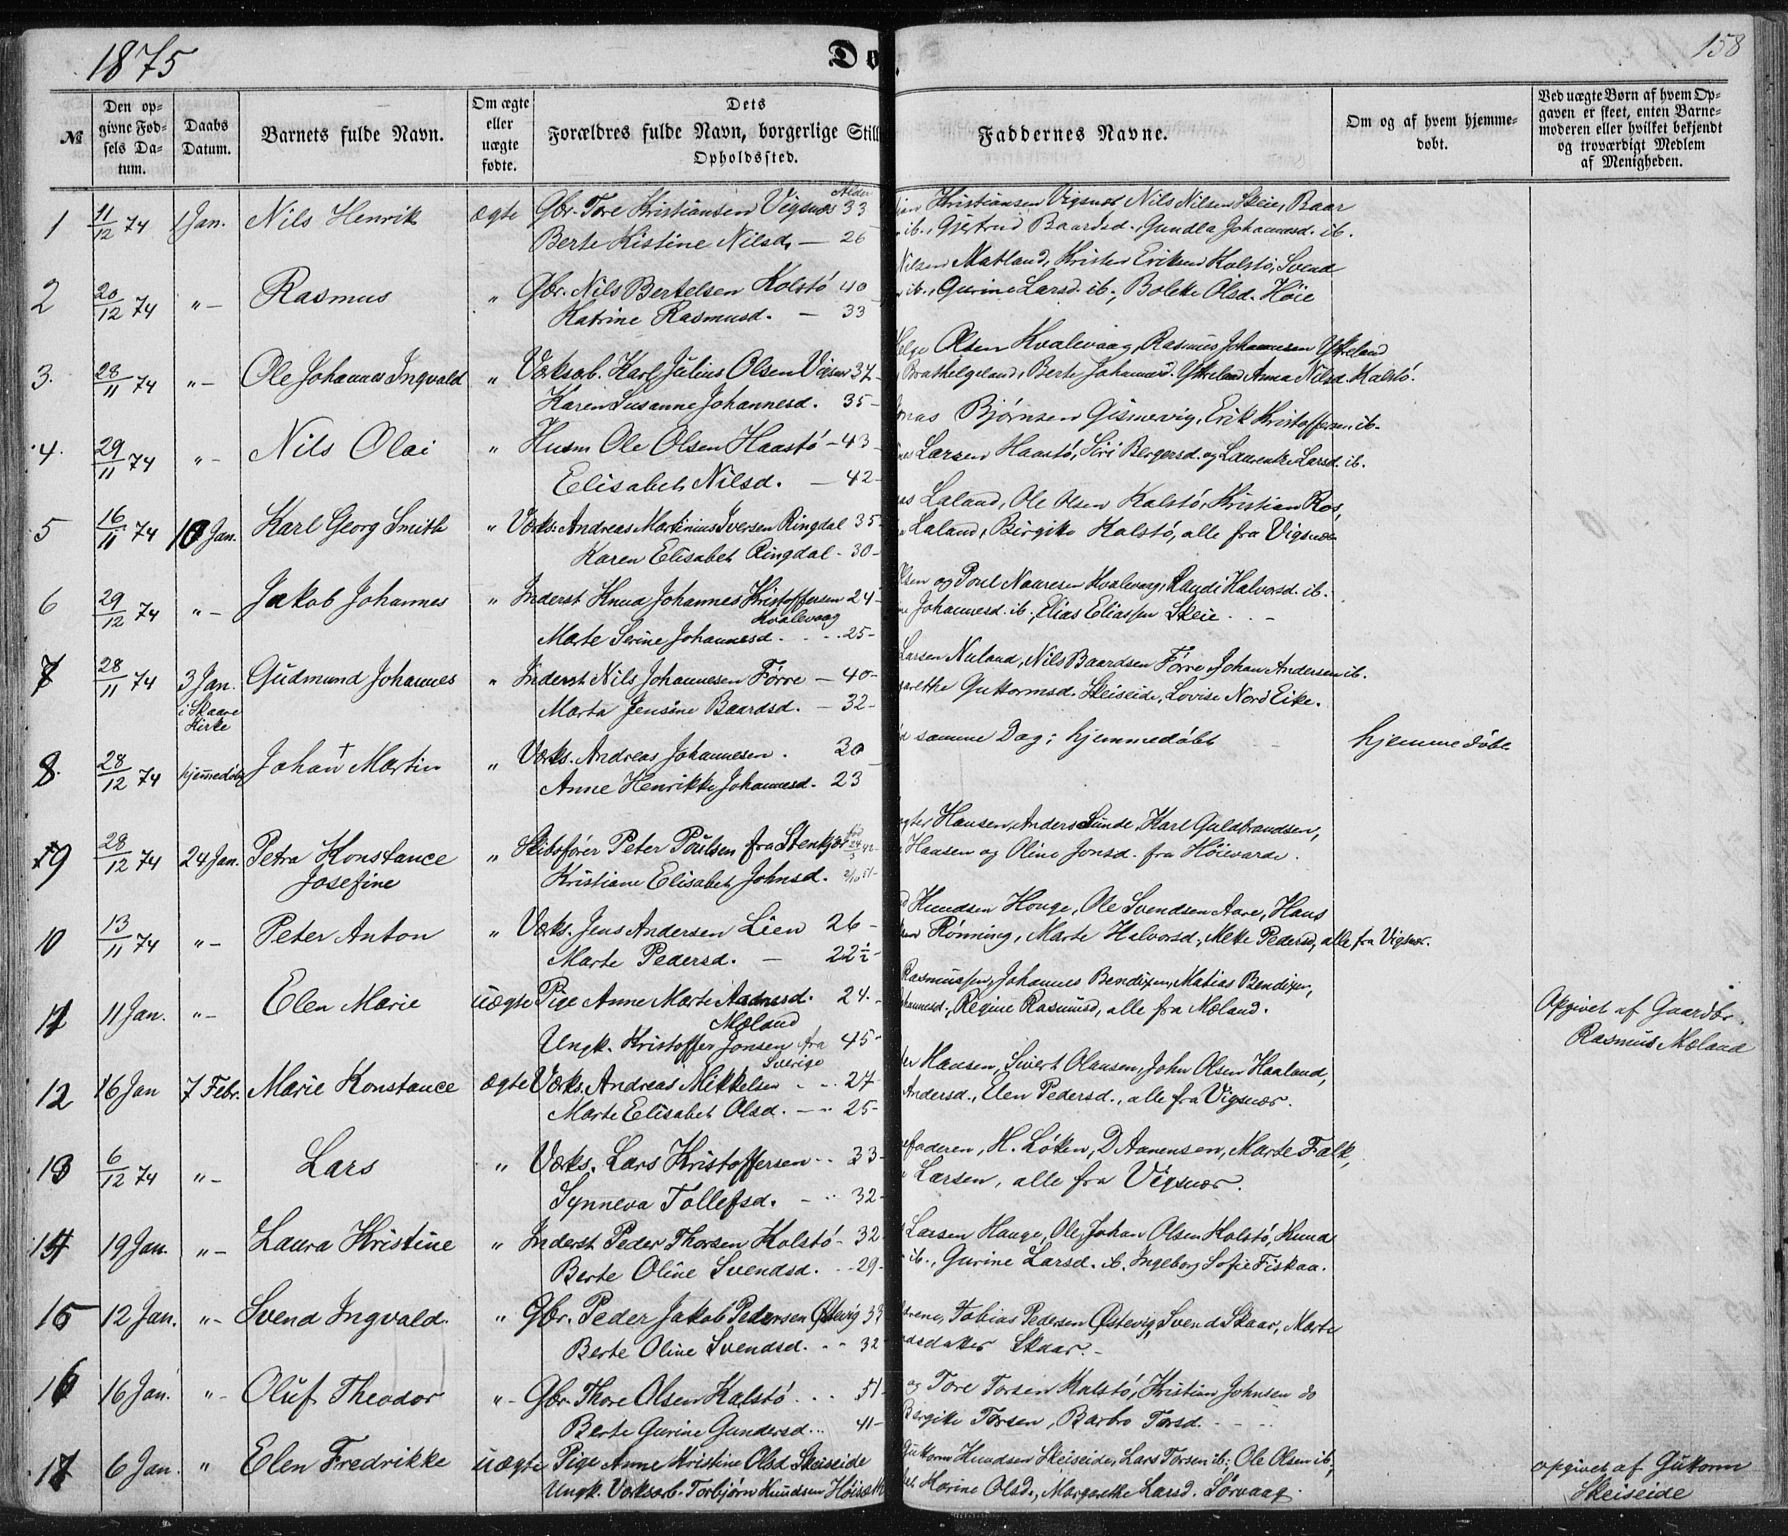 1875
Do
158
№
Den op-
givne Fød-
sels Da-
tum.
Daabs
Datum.
Barnets fulde Navn.
Om ægte
eller
uægte
fødte.
Dets
Forældres fulde Navn, borgerlige Still
Opholdssted.
Faddernes Navne.
Om og af hvem hjemme-
døbt.
Ved uægte Børn af hvem Op-
gaven er skeet, enten Barne-
moderen eller hvilket bekjendt
og troværdigt Medlem
af Menigheden.
1 11/12 74 1 Jan. Nils Henrik ægte Gbr. Tore Kristiansen Vigsnæs Alder 33
Berte Kistine Nilsd. — 26
Kristiansen Vigsnæs Nils Nilsen Skeie, Baar
ib., Gjertrud Baardsd., Gundla Johannesd. ib.
2 20/12 74 "— Rasmus " Gbr. Nils Bertelsen Kolstö 40
Katrine Rasmusd. — 33
Nilsen Matland, Kristen Eriksen Kolstö, Svend
ib., Gurine Larsd. ib., Bolette Olsd. Höie
3. 28/11 74 "— Ole Johannes Ingvald " Værksarb. Karl Julius Olsen Vigsnæs 37
Karen Susanne Johannesd. 35
Helge Olsen Kvalevaag, Rasmus Johannesen Ytreland
Brathelgeland, Berte Johannesd. Ytreland Anna Nilsd. Kalstö.
4. 29/11 74 "— Nils Olai " Husm Ole Olsen Haastö — 43
Elisabet Nilsd. — 42
Jonas Bjørnsen Gismervig, Erik Kristoffersen ib.
Larsen Haastö, Siri Bergersd. og Laurentze Larsd. ib.
5 16/11 74 10 Jan. Karl Georg Smith " Værks. Andreas Martinius Iversen Ringdal 35
Karen Elisabet Ringdal - 30
Laland, Ole Olsen Kalstö, Kristian Ros,
Laland, Birgite Kalstö, alle fra Vigsnæs
6 29/12 74 "— Jakob Johannes " Inderst Knud Johannes Kristoffersen 24
Kvalevaag
Marte Serine Johannesd. 25
Olsen og Poul Nauresen Kvalevaag, Randi Halvorsd. ib.
Johannesd. ib., Elias Eliassen Skeie.
7 28/11 74 3 Jan. Gudmund Johannes " Inderst Nils Johannesen Førre — 40
i Skaare
Kirke
Marta Jensine Baardsd. — 32
Larsen Nuland, Nils Baardsen Førre, Johan Andersen ib.
Guttormsd. Skeiseide, Lovise Nord Eike.
8. 28/12 74 hjemmedøbt Johan † Martin " Værks. Andreas Johannesen. 30
Anne Henrikke Johannesd. 23
samme Dag; hjemmedöbt hjemmedöbt
9 28/12 74 24 Jan. Petra Konstance " Skibsfører Peter Poulsen fra Stenkjær
Josefine
Kristiane Elisabet Johnsd.
Hansen, Anders Sunde, Karl Guldbrandsen,
Hansen og Oline Jonsd. fra Höievarde.
10 13/11 74 "— Peter Anton " Værks. Jens Andersen Lien 26
Marte Pedersd. — 22½
Knudsen Houge, Ole Svendsen Aare, Hans
Rønning, Marte Halvorsd., Mette Pedersd., alle fra Vigsnæs.
11 11 Jan. "— Elen Marie uægte Pige Anne Marte Aadnesd. 24.
Mæland
Ungk. Kristoffer Jonsen fra 45
Sverige
Rasmussen, Johannes Bendixen, Matias Bendixen,
Regine Rasmusd, alle fra Mæland.
Opgivet af Gaardbr.
Rasmus Mæland
12 16 Jan 7 Febr. Marie Konstance ægte Værks. Andreas Mikkelsen 27
Marte Elisabet Olsd. — 25
Hansen, Sivert Olausen, John Olsen Haaland,
Andersd., Elen Pedersd., alle fra Vigsnæs.
13 6/12 74 "— Lars " Værks. Lars Kristoffersen 33
Synneva Tollefsd. — 32
faderen, H. Løken, D Aanensen, Marte Falk,
Larsen, alle fra Vigsnæs.
14 19 Jan. "— Laura Kristine " Inderst Peder Thorsen Kolstö 32
Berte Oline Svendsd. 29
Larsen Hauge, Ole Johan Olsen Kolstö, Knud
ib., Gurine Larsd. ib. Ingeborg Sofie Fiskaa.
15 12 Jan. "— Svend Ingvald " Gbr. Peder Jakob Pedersen Østevig 33
Berte Oline Svendsd. 32
Tobias Pedersen Østevig, Svend Skaar, Marte
Skaar.
16 16 Jan. "— Oluf Theodor "— Gbr. Thore Olsen Kalstö 51
Berte Gurine Gundersd. 41
og Tore Torsen Kalstö, Kristian Johnsen do
Bergite Torsen, Barbro Torsd.
17 6 Jan. " Elen Fredrikke uægte Pige Anne Kristine Olsd Skeiseide
Ungk. Værksarb. Torbjørn Knudsen
Guttorm Knudsen Skeiseide, Lars Torsen ib., Ole Olsen ib,
Karine Olsd., Margrethe Larsd. Sörvaag.
opgivet af Gutorm
Skeiseide